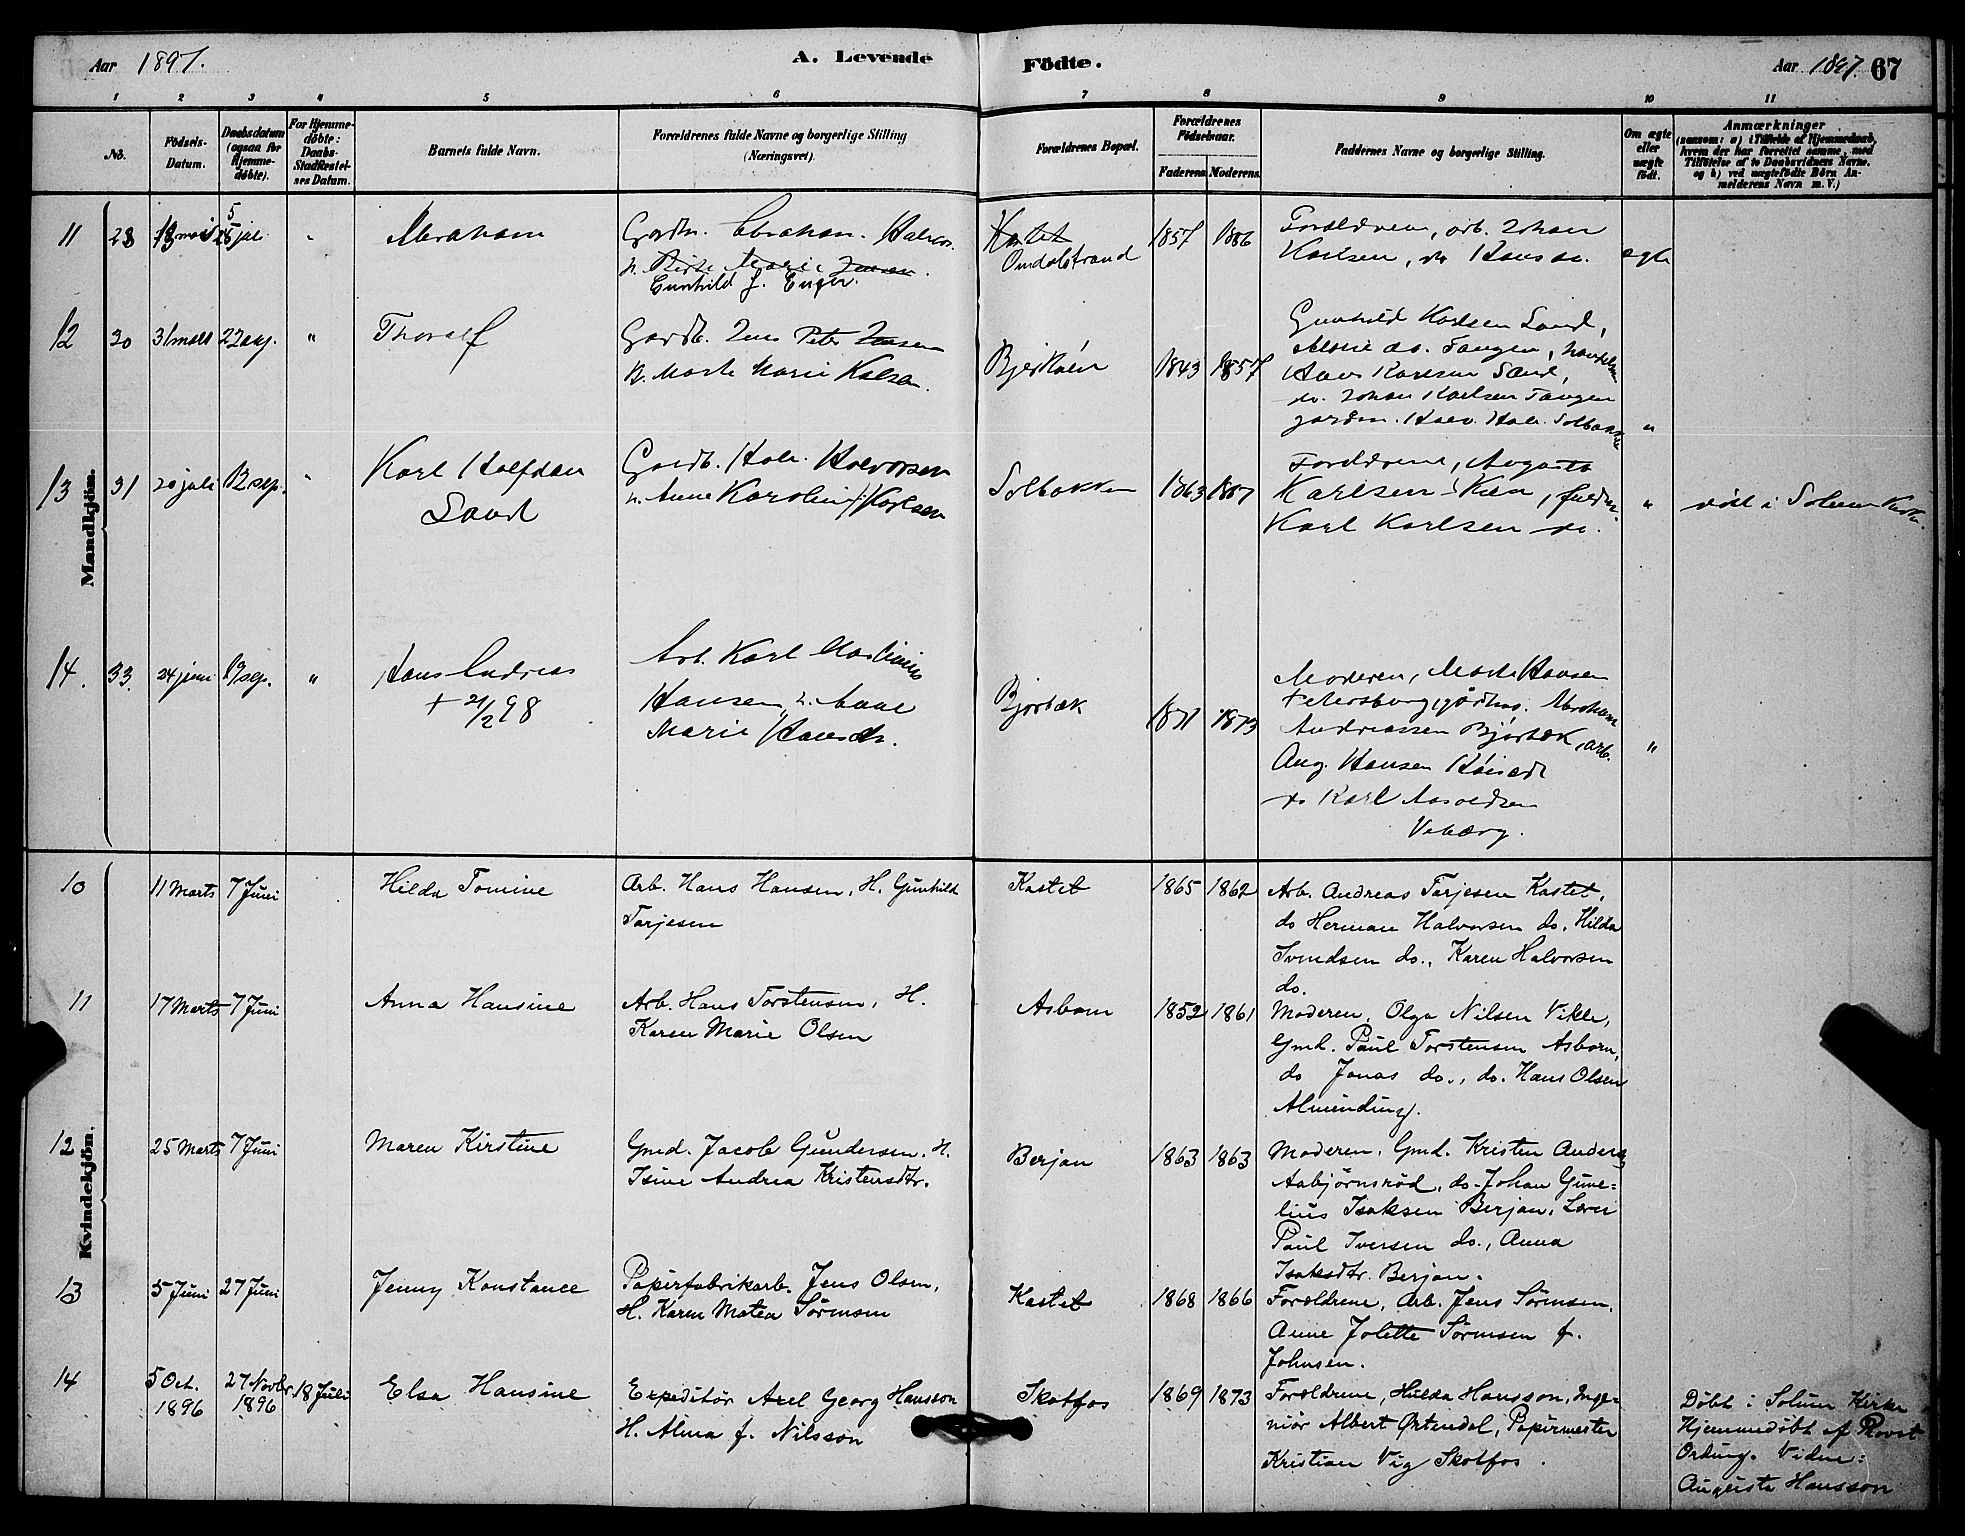 Aar 1897.
A. Levende
Födte.
Aar 1897.
67
1 2 3 4 5 6 7 8 9 10 11
No.
Födsels-
Datum.
Daabsdatum
(ogsaa for
Hjemme-
döbte).
For Hjemme-
döbte:
Daabs-
Stadfæstel-
ses Datum.
Barnets fulde Navn.
Forældrenes fulde Navne og borgerlige Stilling
(Næringsvei).
Forældrenes Bopæl.
Forældrenes
Födselsaar.
Faderens. Moderens.
Faddernes Navne og borgerlige Stilling.
Om ægte
eller
uægte
födt.
Anmærkninger
(saasom: a) i Tilfælde af Hjemmedaab,
hvem der har forrettet samme, med
Tilföielse af to Daabsvidners Navne.
og b) ved uægtefödte Börn An-
melderens Navn m. V.)
Mandkjön.
11 28
Abraham
Gunhild f.
Kastet
Omdalstrand
1857 1866
Forældrene, arb. Johan
Karlsen, do
ægte
12 30 31 mars 22 aug. "
Thoralf
Gardb. Jens Peter Jensen
H. Marte Marie
1843 1857
Gunhild Karlsen Sand,
Marie do. Tangen,
Hans Karlsen Sand,
do. Johan Karlsen Tangen
"
13 31 20 juli 12 sep. "
Karl Halfdan
Sand
Gardb. Halv. Halvorsen
H. Anne Karoline Karlsen
Solbakken
1863 1867
Forældrene, Augusta
Karlsen
Karl Karlsen do.
"
döbt i Solum Kirke.
14. 33. 24 juni 19 sep. "
Hans Andreas
+ 21/2 98
Arb. Karl Mathias
Hansen, H. Anne
Marie Hansdtr.
Bjørbæk
1871 1873
Moderen, Marte Hansen
Petersborg, Abraham
Andreassen Bjørbæk, arb.
Aug. Hansen
do Karl
"
Kvindekjön.
10 11 Marts 7 Juni
Hilda Tomine
Arb. Hans Hansen, H. Gunhild
Tarjesen
Kastet
1865 1862
Arb. Andreas Tarjesen Kastet,
do Herman Halvorsen do, Hilda
Svendsen do., Karen Halvorsen
do.
11 17 Marts 7 Juni
Anna Hansine
Arb. Hans Torstensen, H.
Karen Marie Olsen
Asbom
1852 1861
Moderen, Olga Nilsen Vikle,
Gmd. Paul Torstensen Asbom,
do Jonas do., do. Hans Olsen
Almending.
12 25 Marts 7 Juni
Maren Kirstine
Gmd. Jacob Gundersen, H.
Isine Andrea Kristensdtr.
Berjan
1863 1863
Moderen, Gmd. Kristen Anders.
Aabjørnsrød, do. Johan Gune-
lius Isaksen Berjan, Lærer
Paul Iversen do., Anna
Isaksdtr. Berjan.
13 5 Juni 27 Juni
Jenny Konstance
Papirfabrikarb. Jens Olsen,
H. Karen Matea Sørensen
Kastet
1868 1866
Forældrene, Arb. Jens Sørensen,
Anne Jolette Sørensen f.
Johnsen.
14 5 Oct.
1896
27 Novbr.
1896
18 Juli
Elsa Hansine
Expeditør Axel Georg Hansson
H. Alma f. Nilsson
Skotfos
1869 1873
Forældrene, Hulda Hansson, Inge-
niør Albert Ørtendal, Papirmester
Kristian Vig Skotfos.
Døbt i Solum Kirke
Hjemmedøbt af Provst
Ording. Vidne:
Augusta Hansson